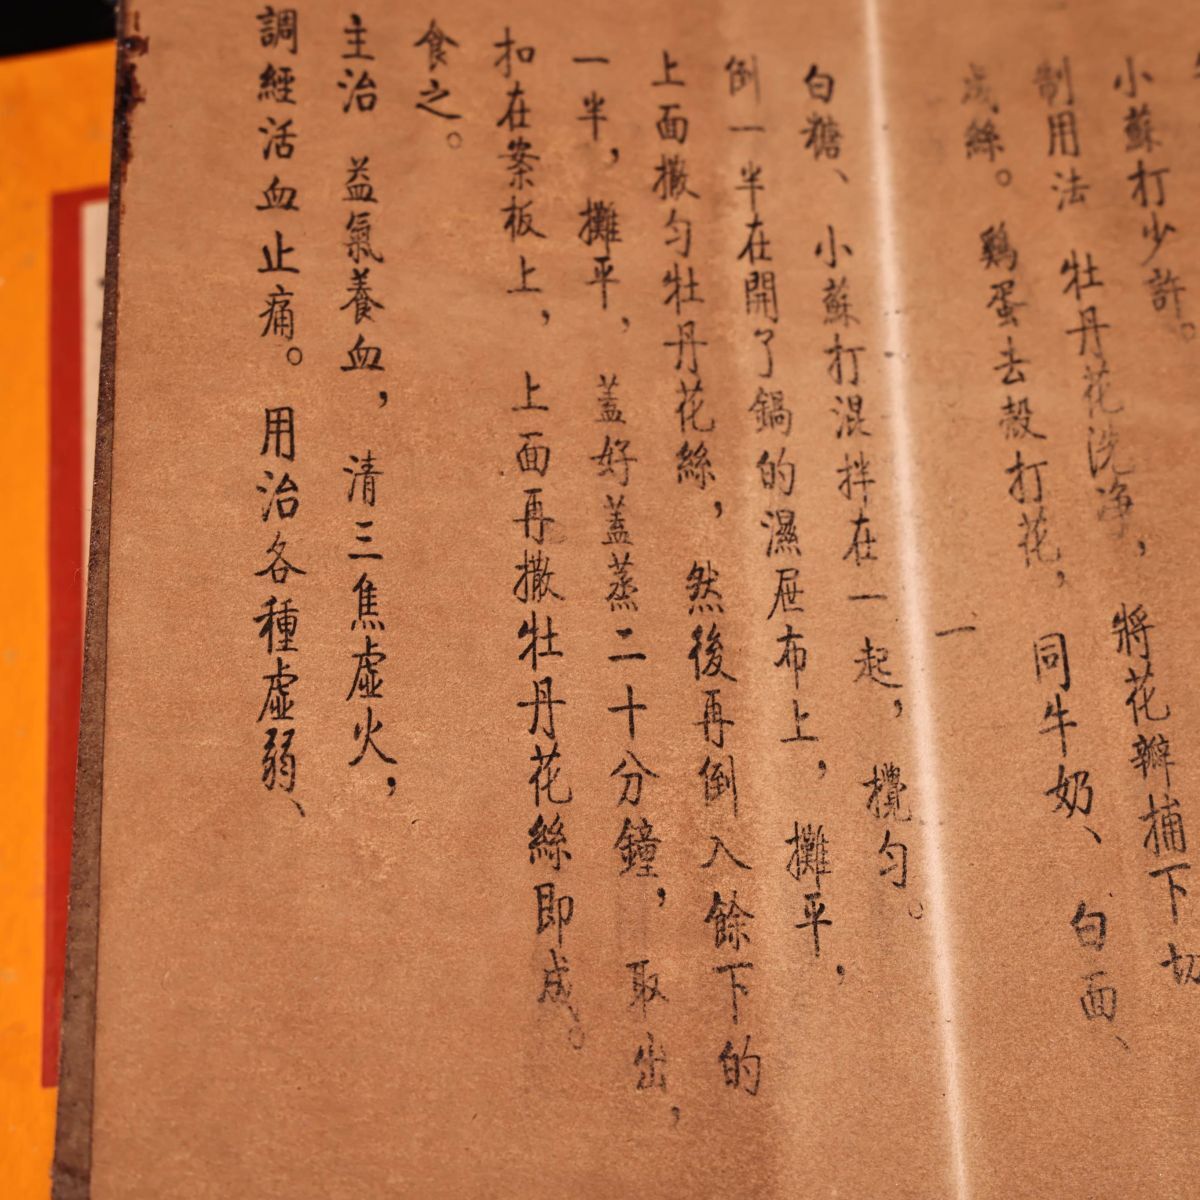 小蘇打少許。
制用法 牡丹花洗净，將花瓣捕下切
成絲。鷄蛋去殼打花，同牛奶、白面、
白糖、小蘇打混拌在一起，攪勻。
倒一半在開了鍋的濕屉布上，攤平，
上面撒勻牡丹花絲，然後再倒入餘下的
一半，攤平，蓋好蓋蒸二十分鐘，取出，
扣在案板上，上面再撒牡丹花絲即成。
食之。
主治 益氣養血，清三焦虛火，
調經活血止痛。用治各種虛弱、